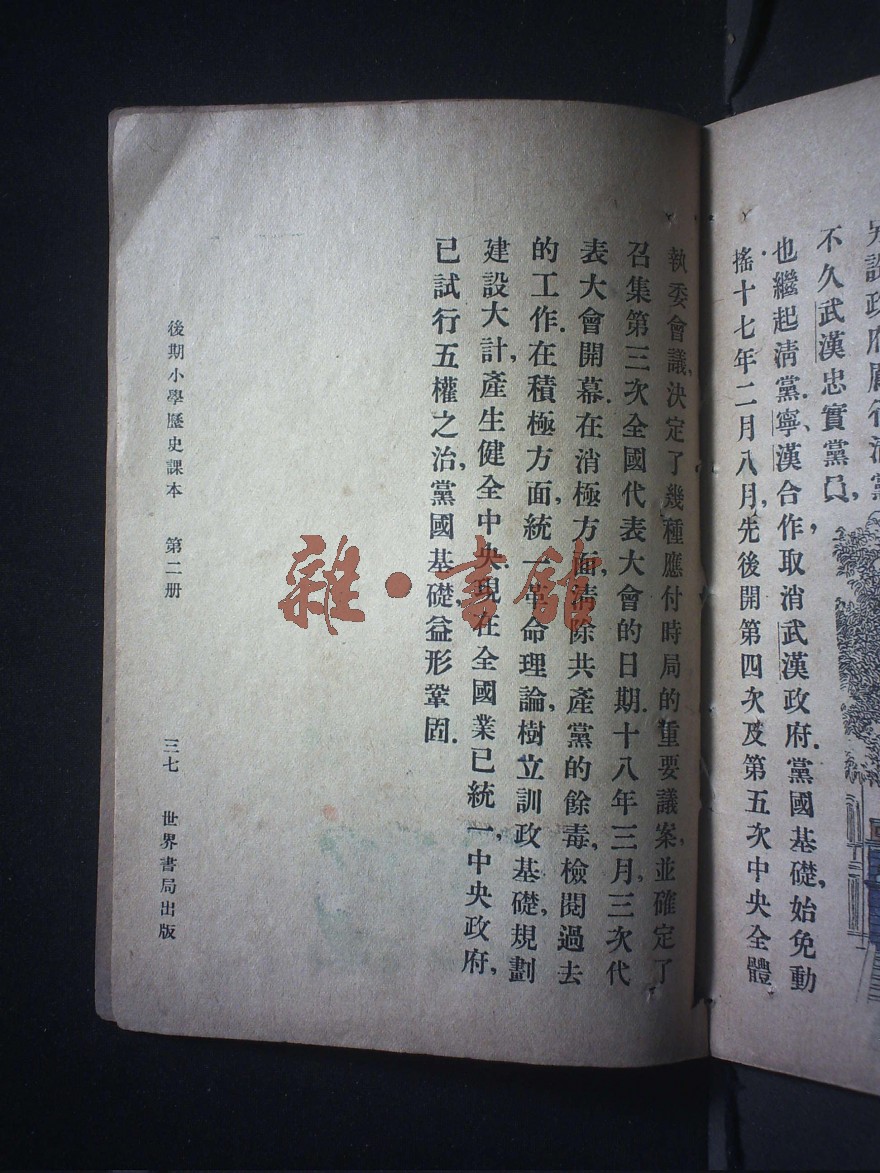 不久武漢忠實黨員,
也繼起淸黨.寧、漢合作取消武漢政府.黨國基礎,始免動
搖.十七年二月八月,先後開第四次及第五次中央全體
執委會議,決定了幾種應付時局的重要議案,並確定了
召集第三次全國代表大會的日期.十八年三月,三次代
表大會開幕.在消極方面,淸除共產黨的餘毒,檢閱過去
的工作.在積極方面,統一革命理論,樹立訓政基礎,規劃
建設大計,產生健全中央.現在全國業已統一,中央政府,
已試行五權之治,黨國基礎,益形鞏固.
後期小學歷史課本 第二册 三七 世界書局出版
雜·書館